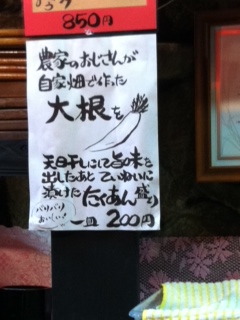 850円
農家のおじさんが
自家畑で作った
大根を
天日干しにして旨味を
出したあとていねいに
漬けたたくあん盛り
パリパリ
おいしい!
一皿 200円